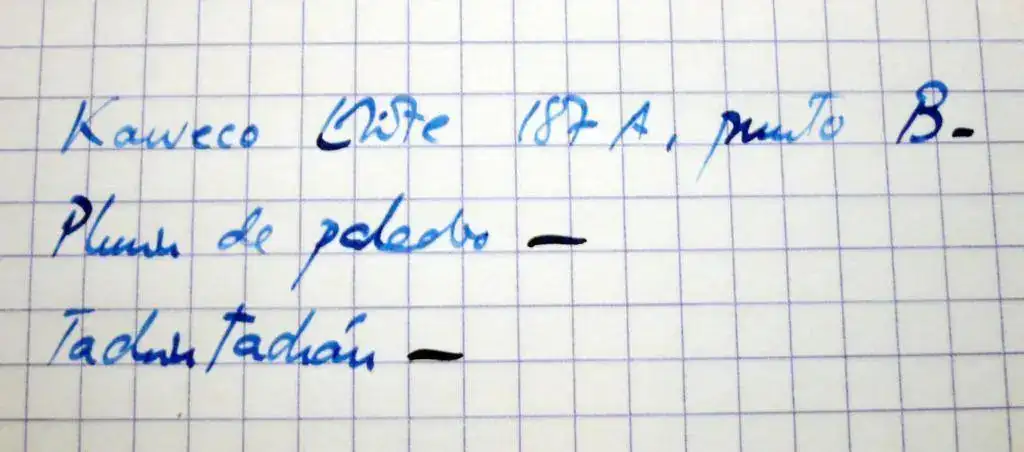 Kaweco Elite 187 A, punto B-
Plumín de paladio —
Tachún tachán —